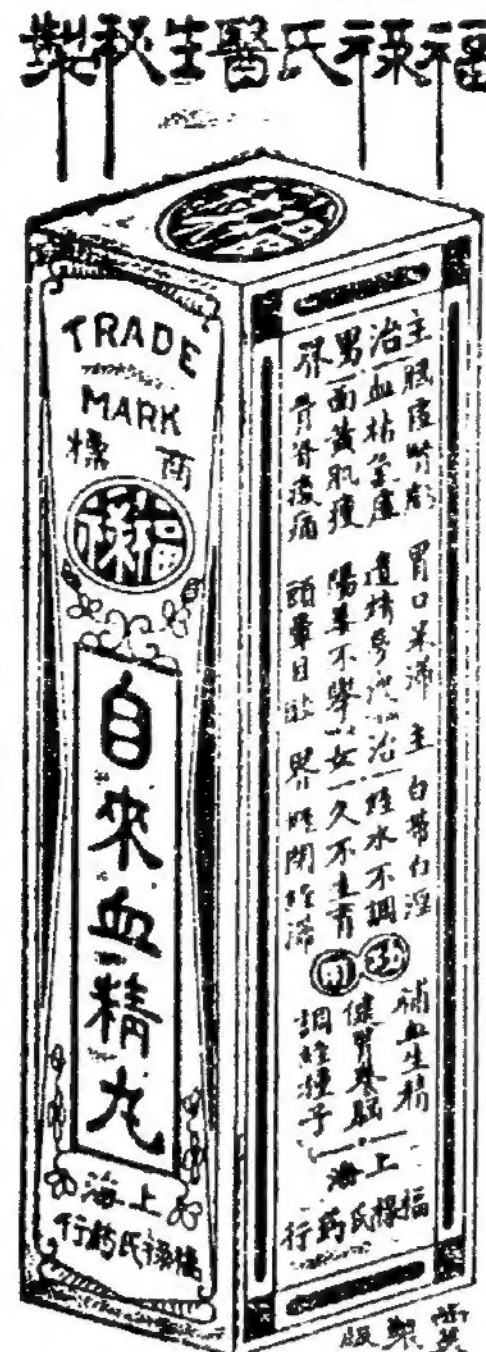 福祿氏醫生秘製
TRADE
MARK
商標
福祿
自來血精丸
上海
福祿氏藥行
主治男
血枯氣虛
面黃肌瘦
胃口呆滯
陽萎不舉
頭暈目眩
主治女
白帶白淫
經水不調
久不生育
功用
補血生精
健腎養腦
調經種子
上海
福祿氏藥行